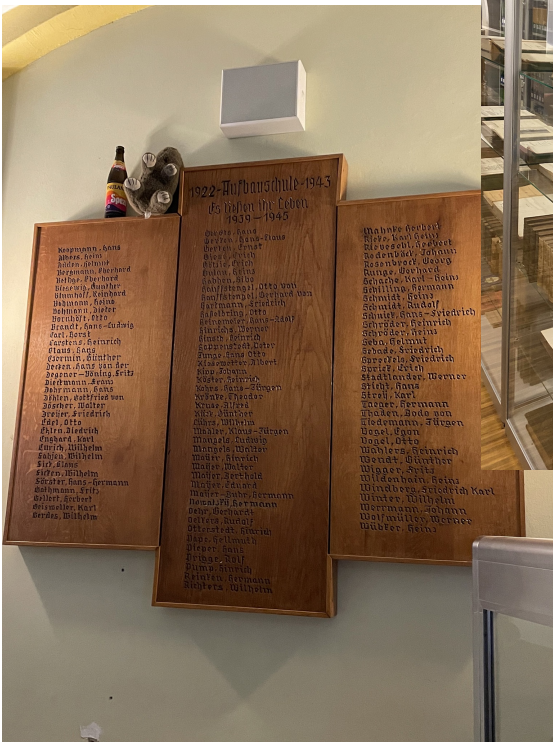 1922-Aufbauschule-1943
Es ließen ihr Leben
1939-1945
Koopmann, Hans
Albers, Heim
Behlen, Helmut
Bergmann, Eberhard
Bethge, Eberhard
Giesewig, Günther
Blumhoff, Reinhard
Bodmann, Hans
Bohlmann, Dieter
Bornhöft, Otto
Brandt, Hans-Ludwig
Carl, Horst
Carstens, Heinrich
Claus, Hans
Czernin, Günther
Decken, Hans von der
Degener-Böning, Fritz
Dieckmann, Franz
Dohrmann, Hans
Döhlen, Gottfried von
Döscher, Walter
Dreyer, Friedrich
Edel, Otto
Ehlen, Diedrich
Enghard, Karl
Eurich, Wilhelm
Fahjen, Wilhelm
Fick, Claus
Ficken, Wilhelm
Förster, Hans-Hermann
Gathmann, Fritz
Gellert, Herbert
Geismeller, Karl
Gerdes, Wilhelm
Gerdts, Hans
Gerken, Hans-Claus
Gerken, Ernst
Giese, Erich
Gülzie, Erich
Gulau, Heinz
Habben, Albo
Hanffstengel, Otto von
Hanffstengel, Gerhard von
Hartmann, Friedrich
Haselbring, Otto
Heinemeyer, Hans-Adolf
Hinrichs, Werner
Hinsch, Heinrich
Hoppenstedt, Peter
Junge, Hans Otto
Kiesewetter, Albert
Klop, Johann
Köster, Heinrich
Kohrs, Hans-Jürgen
Krönke, Theodor
Kruse, Alfred
Kück, Günther
Lührs, Wilhelm
Mahler, Klaus-Jürgen
Mangels, Ludwig
Mangels, Walter
Matzer, Hinrich
Meyer, Walter
Meyer, Berthold
Meyer, Eduard
Meyer-Buhr, Hermann
Nowatzki, Hermann
Oehr, Gerhardt
Oelters, Rudolf
Otterstedt, Hinrich
Pape, Hellmuth
Pieper, Hans
Pringe, Rolf
Plümp, Hinrich
Reinken, Hermann
Richters, Wilhelm
Mahnke Herbert
Rieke, Karl Heinz
Rieveschl, Herbert
Rodenböck, Johann
Rosenbrock, Georg
Runge, Gerhard
Schacht, Karl-Heinz
Schilling, Hermann
Schmidt, Heinz
Schmidt, Rudolf
Schnier, Hans-Friedrich
Schröder, Heinrich
Schröder, Heinz
Sehn, Helmut
Sebade, Friedrich
Spreckels, Friedrich
Sprick, Erich
Stadtlander, Werner
Siebt, Hans
Stroh, Karl
Taeger, Hermann
Thaden, Bodo von
Tiedemann, Jürgen
Vogel, Egon
Vogel, Otto
Wahlers, Heinrich
Wendt, Günther
Wigger, Fritz
Wildenhain, Heinz
Windberg, Friedrich Karl
Winter, Wilhelm
Werrmann, Johann
Wolfmüller, Werner
Wübker, Heinz